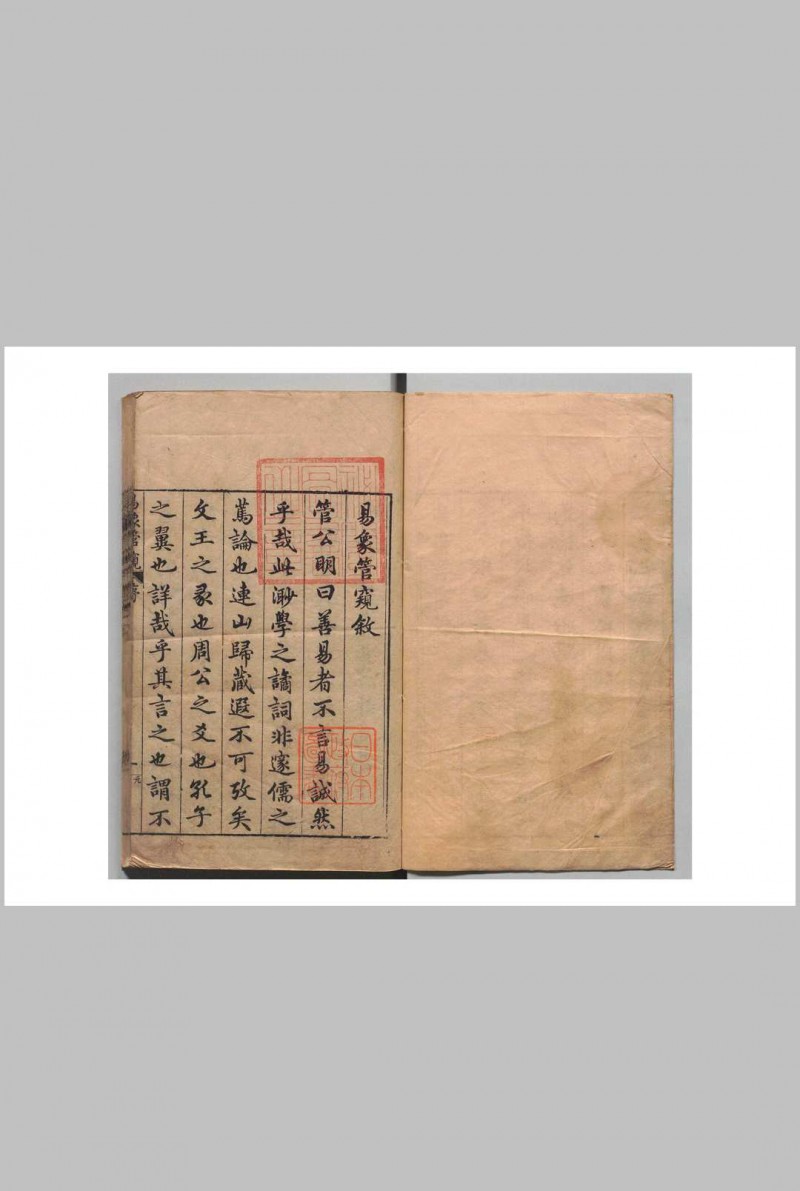 易象管窺敘
管公明曰善易者不言易誠然
乎哉此渺學之譎詞非邃儒之
篤論也連山歸藏遐不可攷矣
文王之彖也周公之爻也孔子
之翼也詳哉乎其言之也謂不
易象管窺 序
一
元
日本